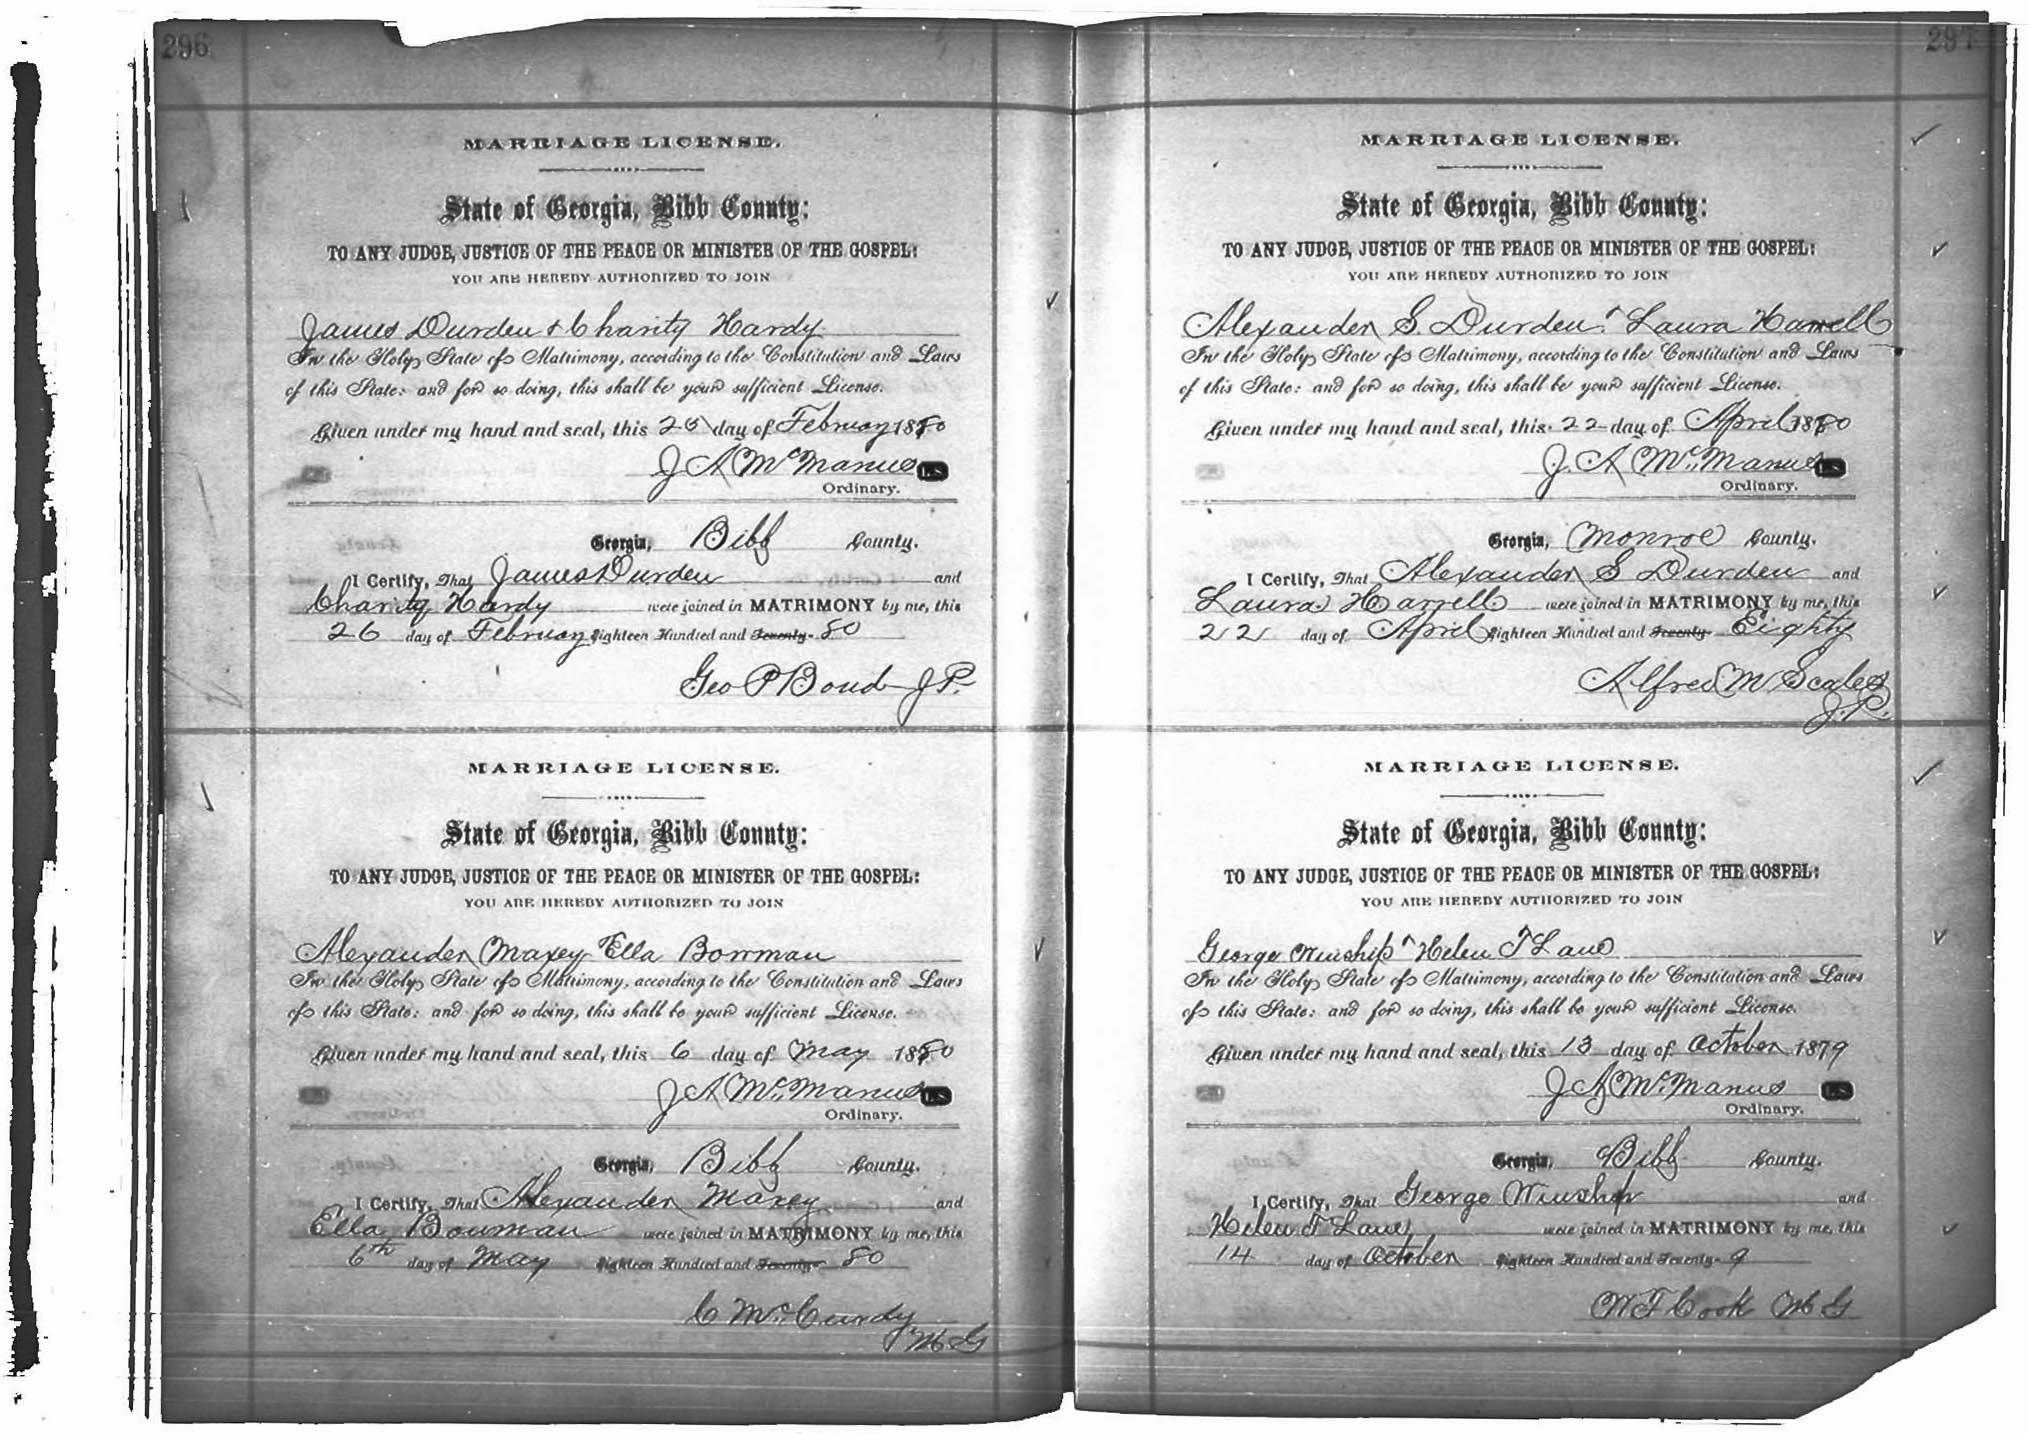 296
MARRIAGE LICENSE.
State of Georgia, Bibb County:
TO ANY JUDGE, JUSTICE OF THE PEACE OR MINISTER OF THE GOSPEL:
YOU ARE HEREBY AUTHORIZED TO JOIN
James Durden & Charity Hardy
In the Holy State of Matrimony, according to the Constitution and Laws
of this State: and for so doing, this shall be your sufficient License.
Given under my hand and seal, this day of February 1880
J A McManus L.S.
Ordinary.
Georgia, Bibb County.
I Certify, That James Durden and
Charity Hardy were joined in MATRIMONY by me, this
26 day of February Eighteen Hundred and Seventy- 80
Geo P Bond J P.
MARRIAGE LICENSE.
State of Georgia, Bibb County:
TO ANY JUDGE, JUSTICE OF THE PEACE OR MINISTER OF THE GOSPEL:
YOU ARE HEREBY AUTHORIZED TO JOIN
Alexander Maxey & Ella Bowman
In the Holy State of Matrimony, according to the Constitution and Laws
of this State: and for so doing, this shall be your sufficient License.
Given under my hand and seal, this 6 day of May 1880
J A McManus L.S.
Ordinary.
Georgia, Bibb County.
I Certify, That Alexander Maxey and
Ella Bowman were joined in MATRIMONY by me, this
6th day of May Eighteen Hundred and Seventy- 80
C McCurdy
M G
297
MARRIAGE LICENSE.
State of Georgia, Bibb County:
TO ANY JUDGE, JUSTICE OF THE PEACE OR MINISTER OF THE GOSPEL:
YOU ARE HEREBY AUTHORIZED TO JOIN
Alexander S. Durden & Laura Harrell
In the Holy State of Matrimony, according to the Constitution and Laws
of this State: and for so doing, this shall be your sufficient License.
Given under my hand and seal, this 22 day of April 1880
J. A McManus L.S.
Ordinary.
Georgia, Monroe County.
I Certify, That Alexander S Durden and
Laura Harrell were joined in MATRIMONY by me, this
22 day of April Eighteen Hundred and Seventy- Eighty
Alfred M Scales
J.P.
MARRIAGE LICENSE.
State of Georgia, Bibb County:
TO ANY JUDGE, JUSTICE OF THE PEACE OR MINISTER OF THE GOSPEL:
YOU ARE HEREBY AUTHORIZED TO JOIN
George Winship & Helen T Lane
In the Holy State of Matrimony, according to the Constitution and Laws
of this State: and for so doing, this shall be your sufficient License.
Given under my hand and seal, this 13 day of October 1879
J A McManus L.S.
Ordinary.
Georgia, Bibb County.
I Certify, That George Winship and
Helen T Lane were joined in MATRIMONY by me, this
14 day of October Eighteen Hundred and Seventy- 9
W F Cook M G